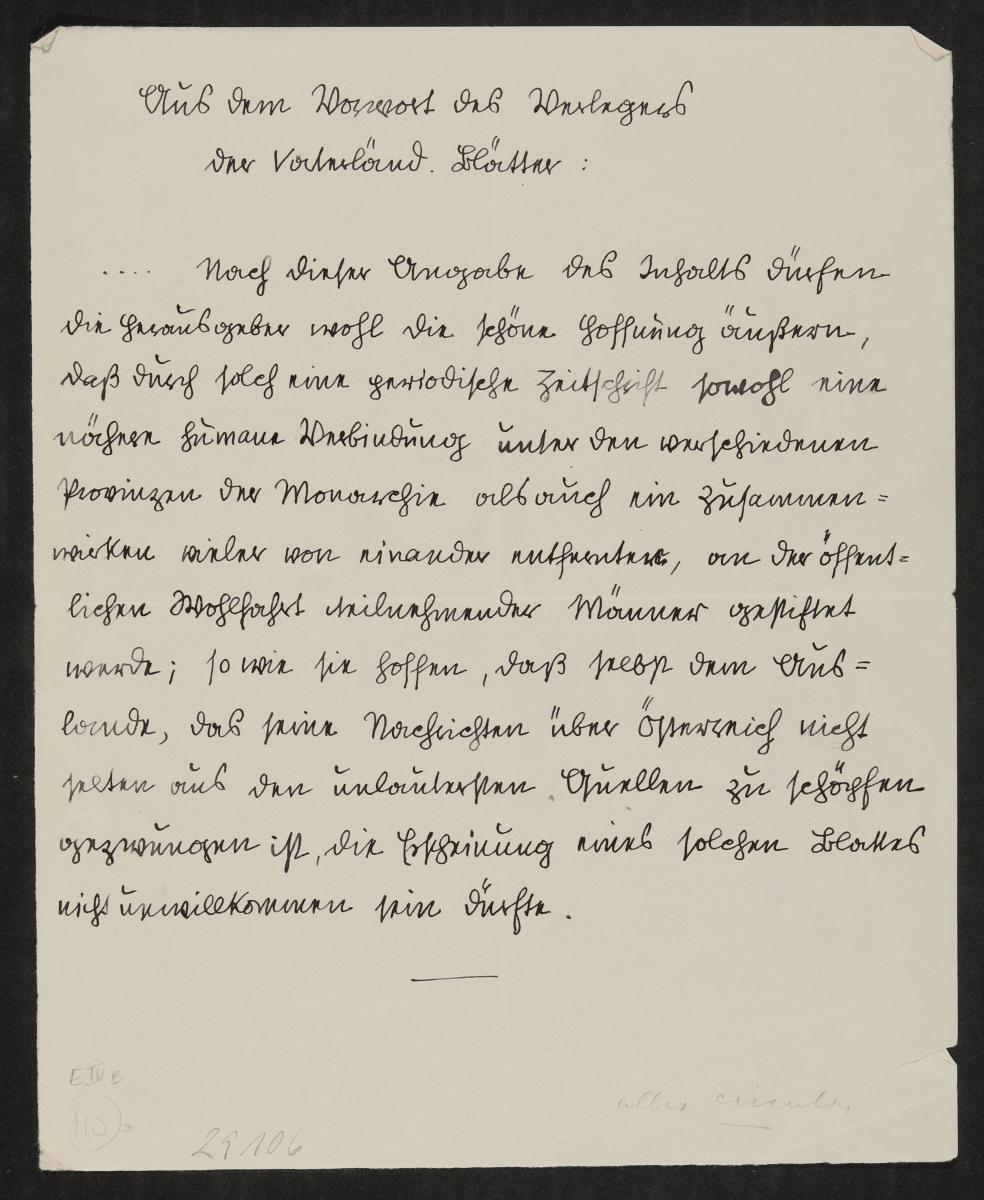 Aus dem Vorwort des Verlegers
der Vaterländ. Blätter :
.... Nach dieser Angabe des Inhalts dürfen
die Herausgeber wohl die schöne Hoffnung äußern,
daß durch solch eine periodische Zeitschrift sowohl eine
nähere humane Verbindung unter den verschiedenen
Provinzen der Monarchie als auch ein Zusammen=
wirken vieler von einander entfernter, an der öffent=
lichen Wohlfahrt teilnehmender Männer gestiftet
werde; so wie sie hoffen, daß selbst dem Aus=
lande, das seine Nachrichten über Österreich nicht
selten aus den unlautersten Quellen zu schöpfen
gezwungen ist, die Erscheinung eines solchen Blattes
nicht unwillkommen sein dürfte.
E IV B
110 3
29106
alles